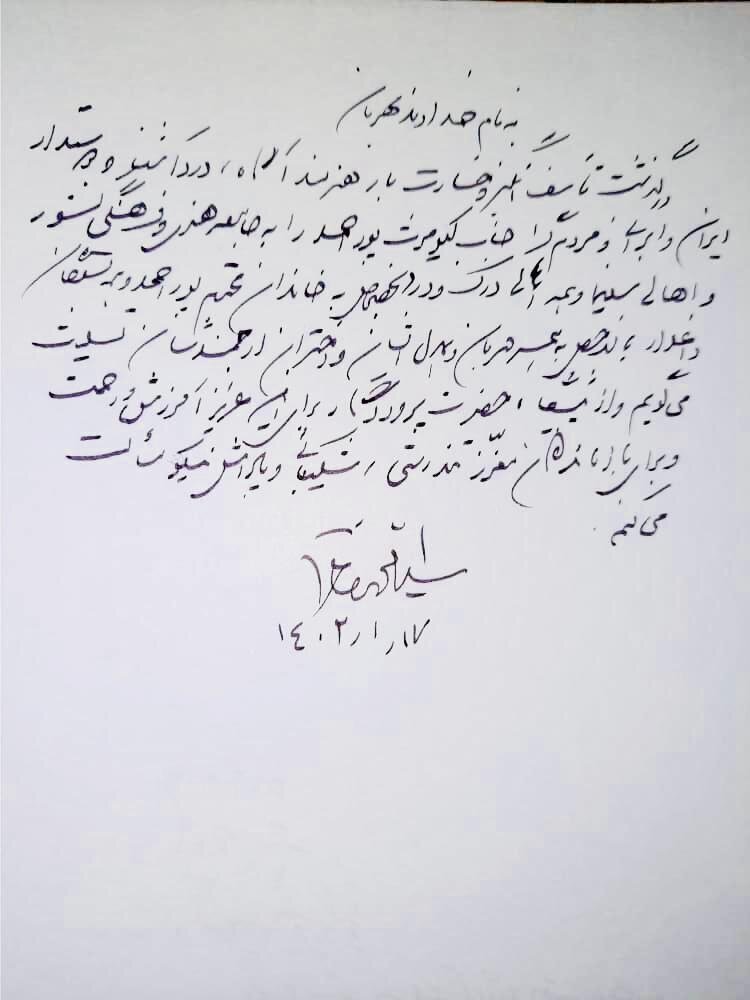 به نام خداوند مهربان
درگذشت تأسف انگیز و خسارت بار هنرمند آگاه، دردآشنا و دوستدار
ایران و ایرانی و مردم گرا جناب کیومرث پوراحمد را به جامعه هنری و فرهنگی کشور
و اهالی سینما و همه اهالی درک و درد بخصوص به خاندان محترم پوراحمد و بستگان
داغدار بالاخص به همسر مهربان و دختران ارجمندشان تسلیت
می گویم و از پیشگاه حضرت پروردگار برای آن عزیز آمرزش و رحمت
و برای بازماندگان معزز تندرستی، شکیبائی و پاداش نیکو مسألت
می کنم.
۱۷ر۱ر۱۴۰۲